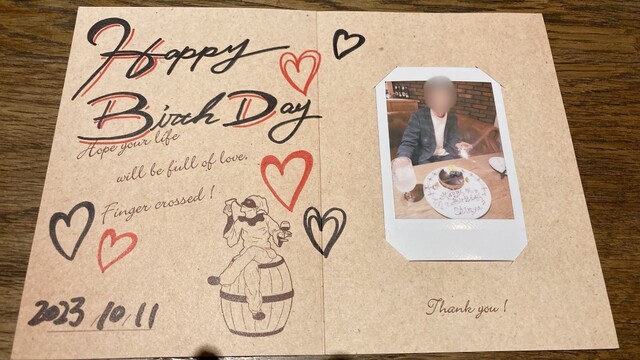 Happy
Birth Day
Hope your life
will be full of love.
Finger crossed !
2023/10/11
Thank you !